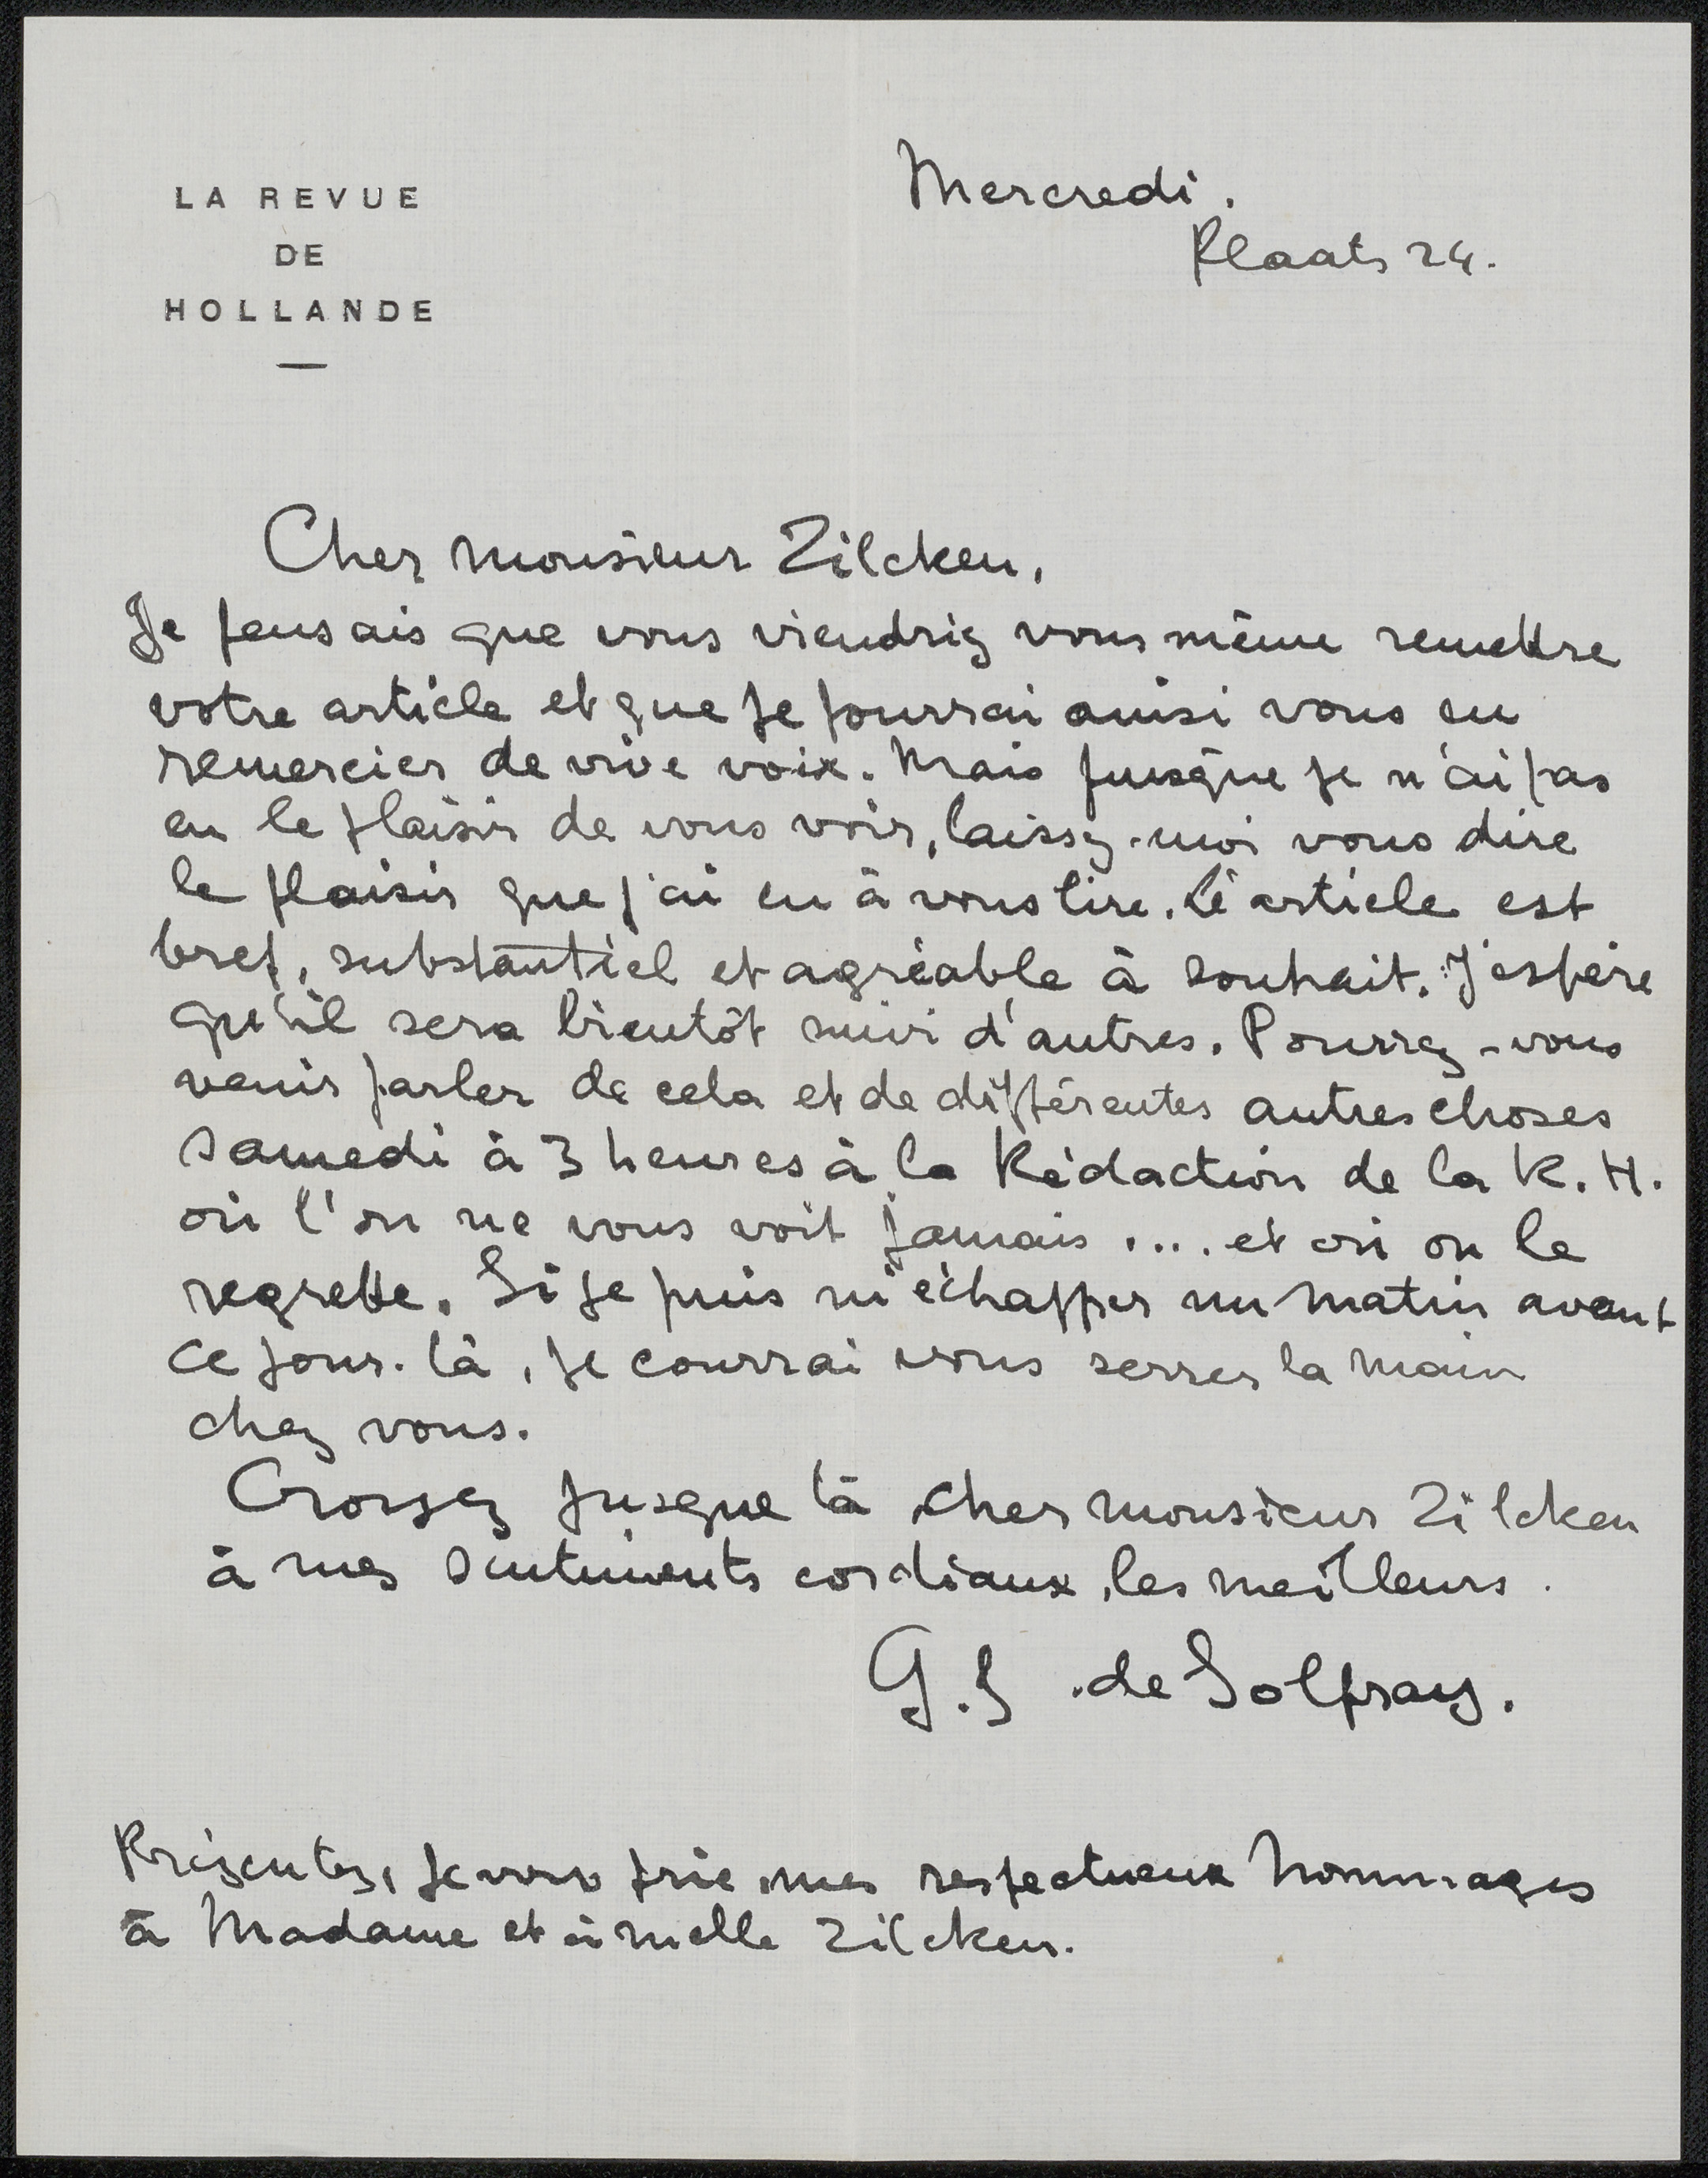 LA REVUE
DE
HOLLANDE
Mercredi.
Plaats 24.
Cher Monsieur Zilcken,
Je pensais que vous viendriez vous même remettre
votre article et que je pourrai ainsi vous en
remercier de vive voix. Mais puisque je n'ai pas
eu le plaisir de vous voir, laissez-moi vous dire
le plaisir que j'ai eu à vous lire. L'article est
bref, substantiel et agréable à souhait. J'espère
qu'il sera bientôt suivi d'autres. Pourrez-vous
venir parler de cela et de différentes autres choses
samedi à 3 heures à la Rédaction de la R. H.
où l'on ne vous voit jamais .... et où on le
regrette. Si je puis m'échapper un matin avant
ce jour-là, je courrai vous serrer la main
chez vous.
Croyez jusque là, cher monsieur Zilcken
à mes sentiments cordiaux, les meilleurs.
G.S. de Solpray.
Présentez, je vous prie, mes respectueux hommages
à Madame et à Melle Zilcken.